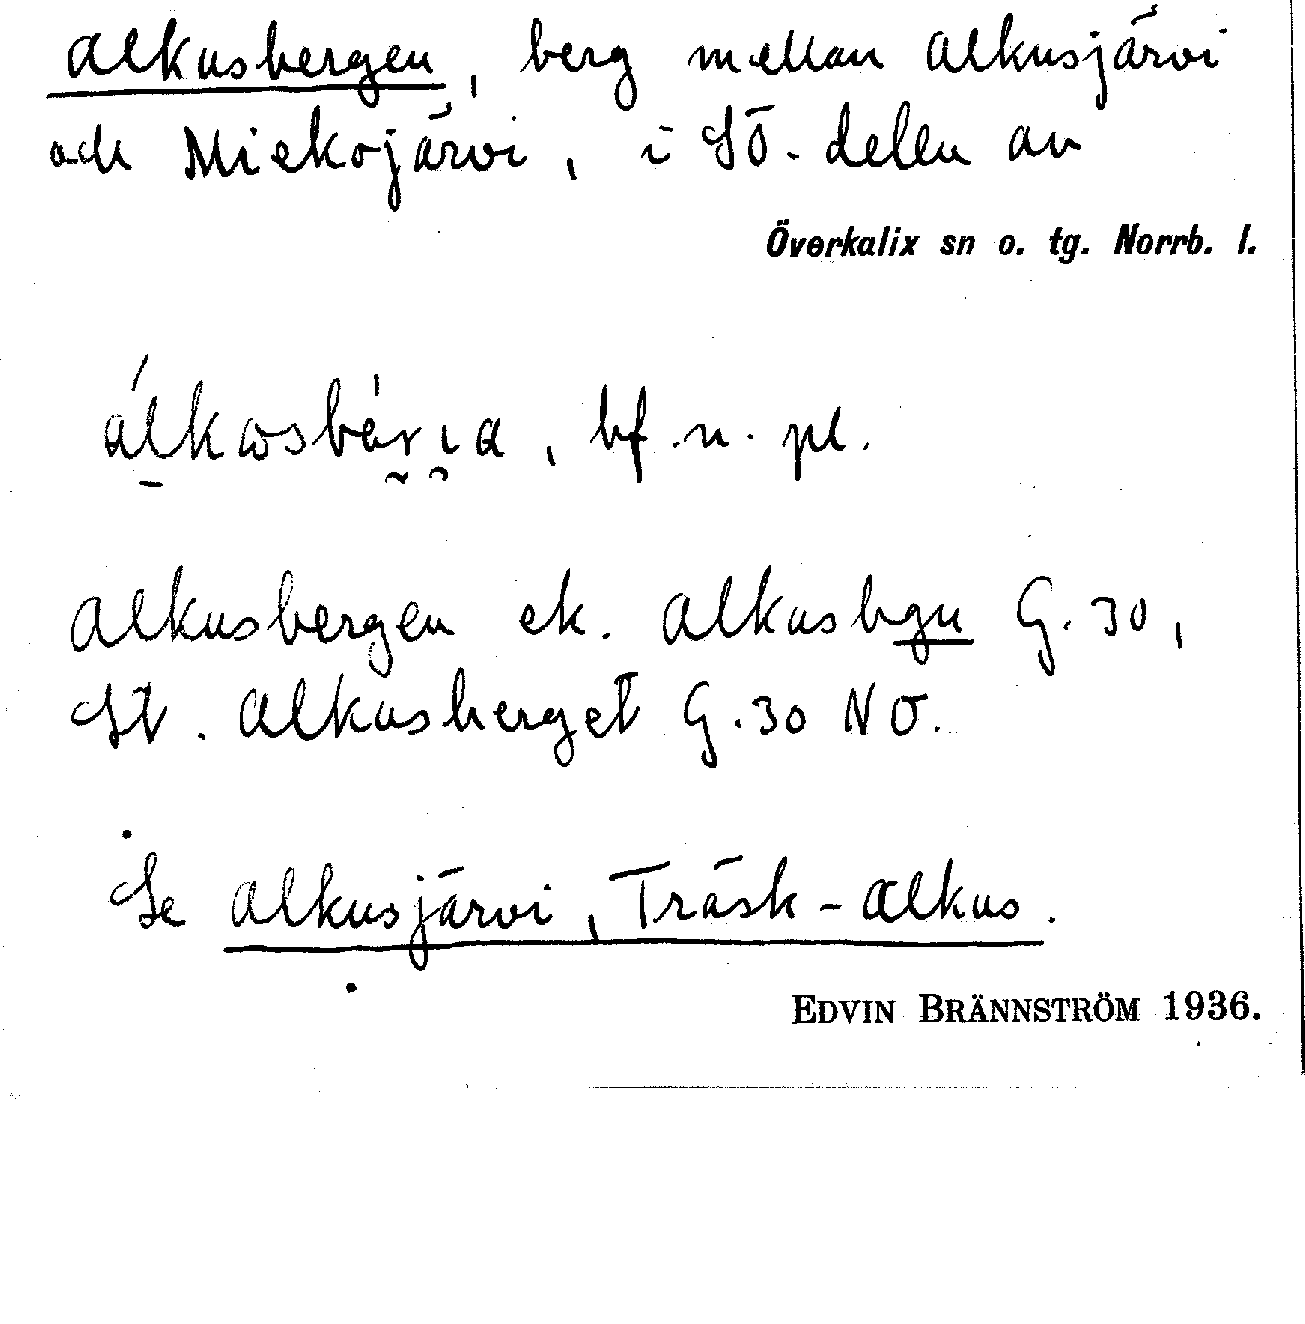 Alkusbergen, berg mellan Alkusjärvi
och Miekojärvi, i SÖ. delen av
Överkalix sn o. tg. Norrb. l.
bf. n. pl.
Alkusbergen ek. Alkusbgn G. 30,
St. Alkusberget G. 30 NO.
Se Alkusjärvi, Träsk-Alkus.
EDVIN BRÄNNSTRÖM 1936.